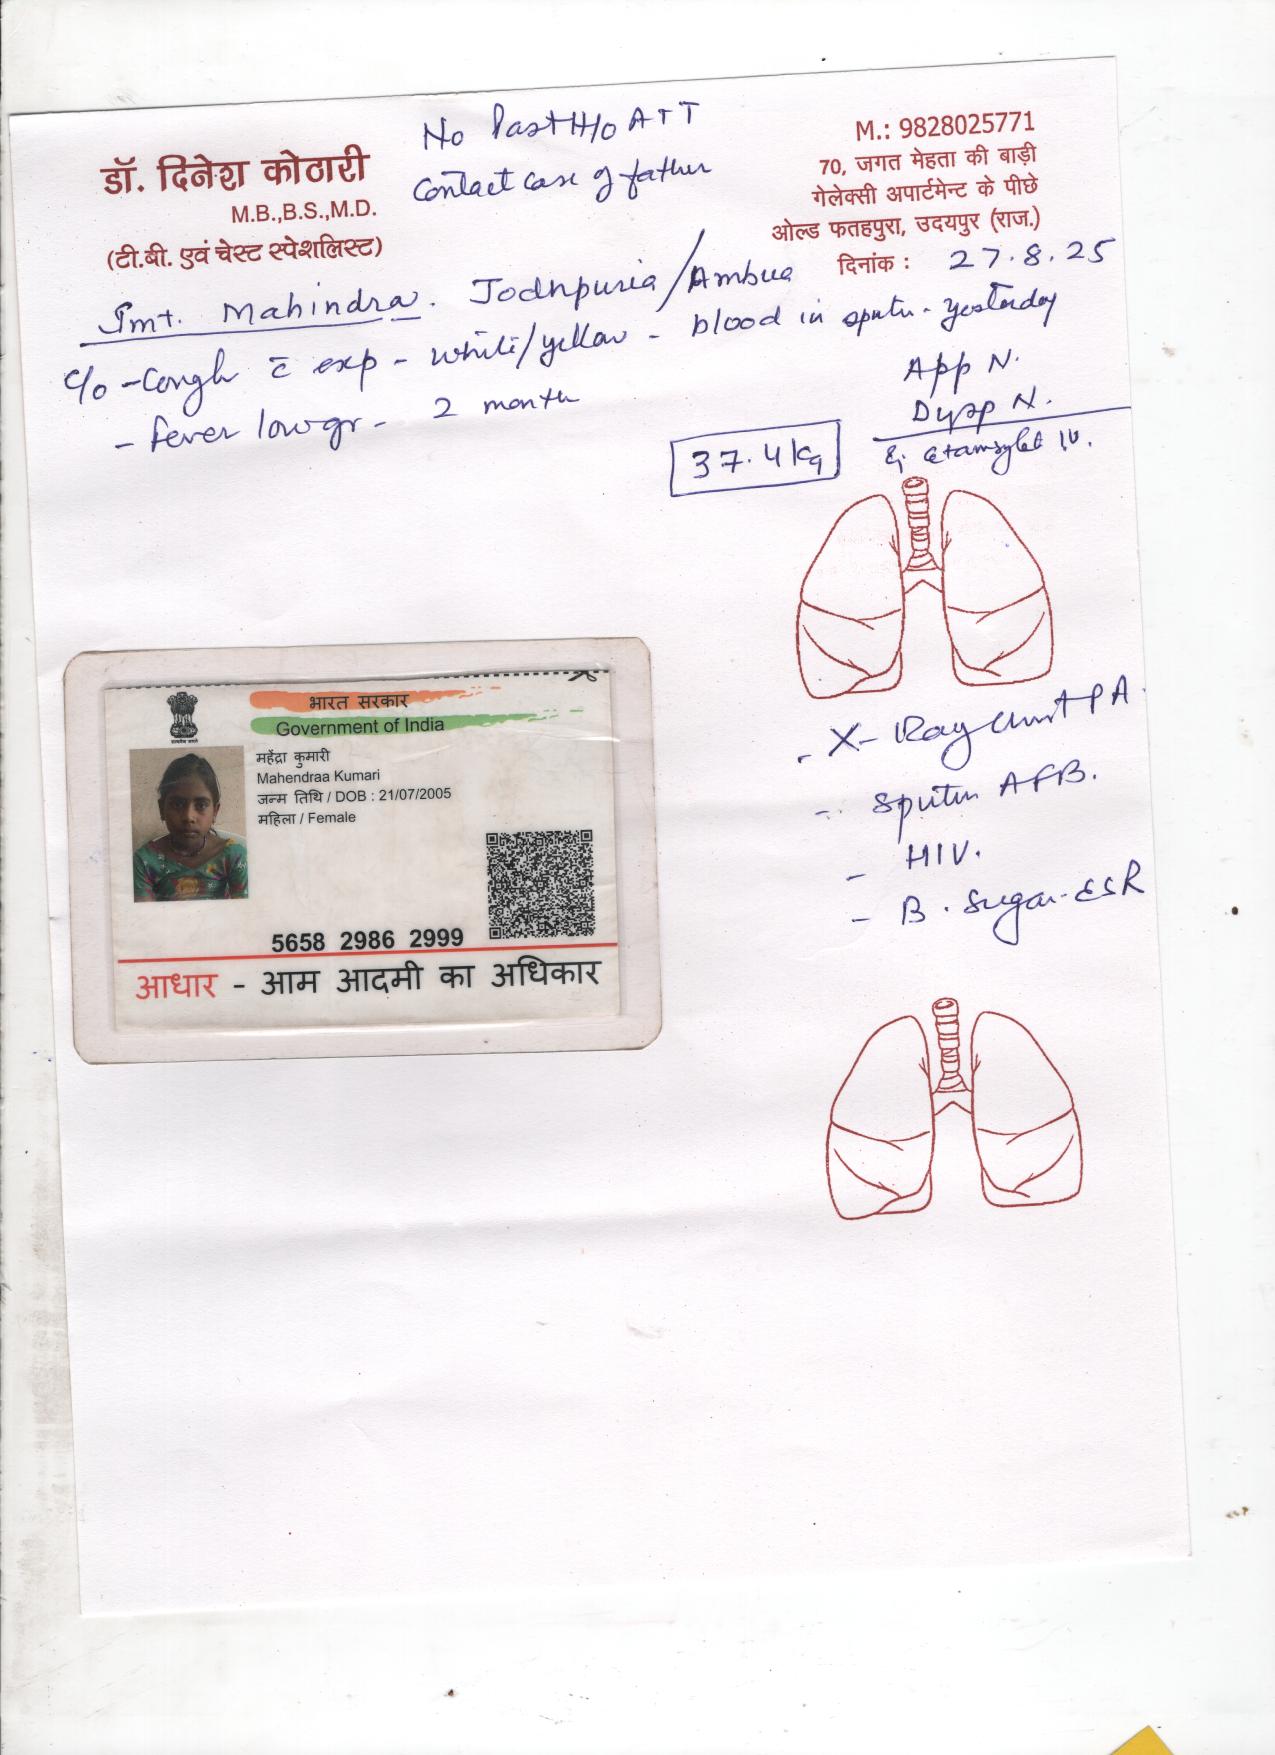 No Past H/o ATT
Contact case of father
डॉ. दिनेश कोठारी
M.B.,B.S.,M.D.
(टी.बी. एवं चेस्ट स्पेशलिस्ट)
M.: 9828025771
70, जगत मेहता की बाड़ी
गेलेक्सी अपार्टमेन्ट के पीछे
ओल्ड फतहपुरा, उदयपुर (राज.)
दिनांक : 27.8.25
Smt. Mahindra. Jodhpuria/Ambua
c/o - Cough c̄ exp - white/yellow - blood in sputu - yesterday
- fever low gr - 2 month
App N.
Dysp N.
37.4 kg
Etamsylet I.V.
- X-Ray Chest PA.
- Sputum AFB.
- HIV.
- B. Sugar - ESR
भारत सरकार
Government of India
महेंद्रा कुमारी
Mahendraa Kumari
जन्म तिथि / DOB : 21/07/2005
महिला / Female
5658 2986 2999
आधार - आम आदमी का अधिकार